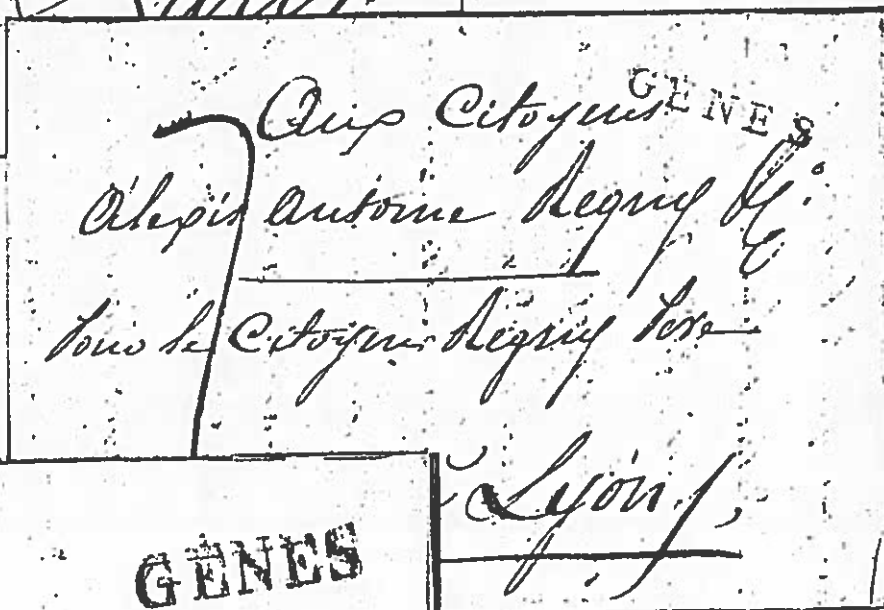 Aux Citoyens
GENES
Alexis Antoine Regny &
Pour le Citoyen Regny Pere
Lyon
GÊNES